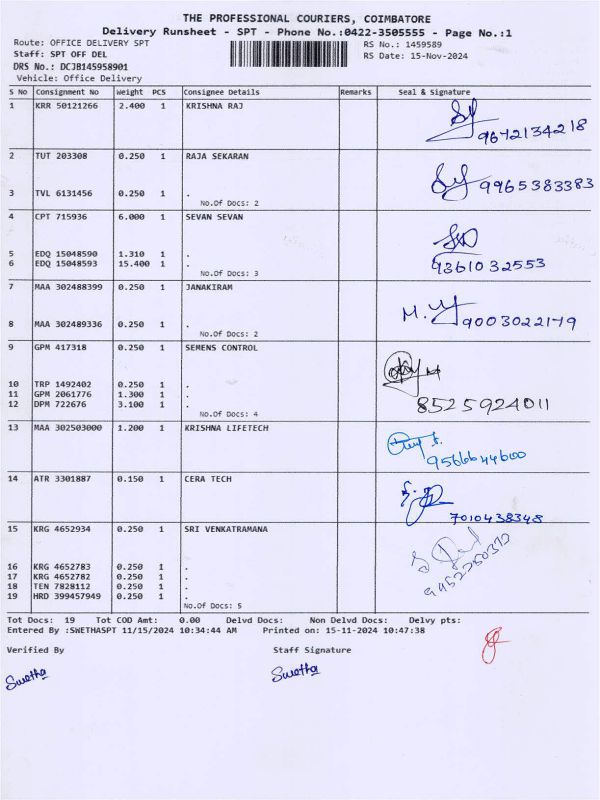 THE PROFESSIONAL COURIERS, COIMBATORE
Delivery Runsheet - SPT - Phone No.:0422-3505555 - Page No.:1
Route: OFFICE DELIVERY SPT RS No.: 1459589
Staff: SPT OFF DEL RS Date: 15-Nov-2024
DRS No.: DCJB145958901
Vehicle: Office Delivery
S No Consignment No Weight PCS Consignee Details Remarks Seal & Signature
1 KRR 50121266 2.400 1 KRISHNA RAJ
9672134218
2 TUT 203308 0.250 1 RAJA SEKARAN
9965383383
3 TVL 6131456 0.250 1 .
No.Of Docs: 2
4 CPT 715936 6.000 1 SEVAN SEVAN
5 EDQ 15048590 1.310 1 .
6 EDQ 15048593 15.400 1 .
9361032553
No.Of Docs: 3
7 MAA 302488399 0.250 1 JANAKIRAM
M.
9003022179
8 MAA 302489336 0.250 1 .
No.Of Docs: 2
9 GPM 417318 0.250 1 SEMENS CONTROL
10 TRP 1492402 0.250 1 .
11 GPM 2061776 1.300 1 .
12 DPM 722676 3.100 1 .
8525924011
No.Of Docs: 4
13 MAA 302503000 1.200 1 KRISHNA LIFETECH
9566644600
14 ATR 3301887 0.150 1 CERA TECH
7010438348
15 KRG 4652934 0.250 1 SRI VENKATRAMANA
16 KRG 4652783 0.250 1 .
17 KRG 4652782 0.250 1 .
18 TEN 7828112 0.250 1 .
19 HRD 399457949 0.250 1 .
No.Of Docs: 5
Tot Docs: 19 Tot COD Amt: 0.00 Delvd Docs: Non Delvd Docs: Delvy pts:
Entered By :SWETHASPT 11/15/2024 10:34:44 AM Printed on: 15-11-2024 10:47:38
Verified By Staff Signature
Swetha Swetha